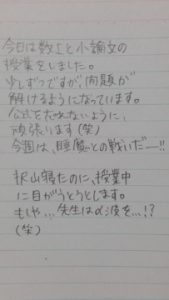 今日は数Ⅰと小論文の
授業をしました。
少しずつですが、問題が
解けるようになっています。
公式を忘れないように、
頑張ります(笑)
今週は、睡魔との戦いだ──!!
沢山寝たのに、授業中
に目がうとうとします。
もしや…先生はα波を…!?
(笑)